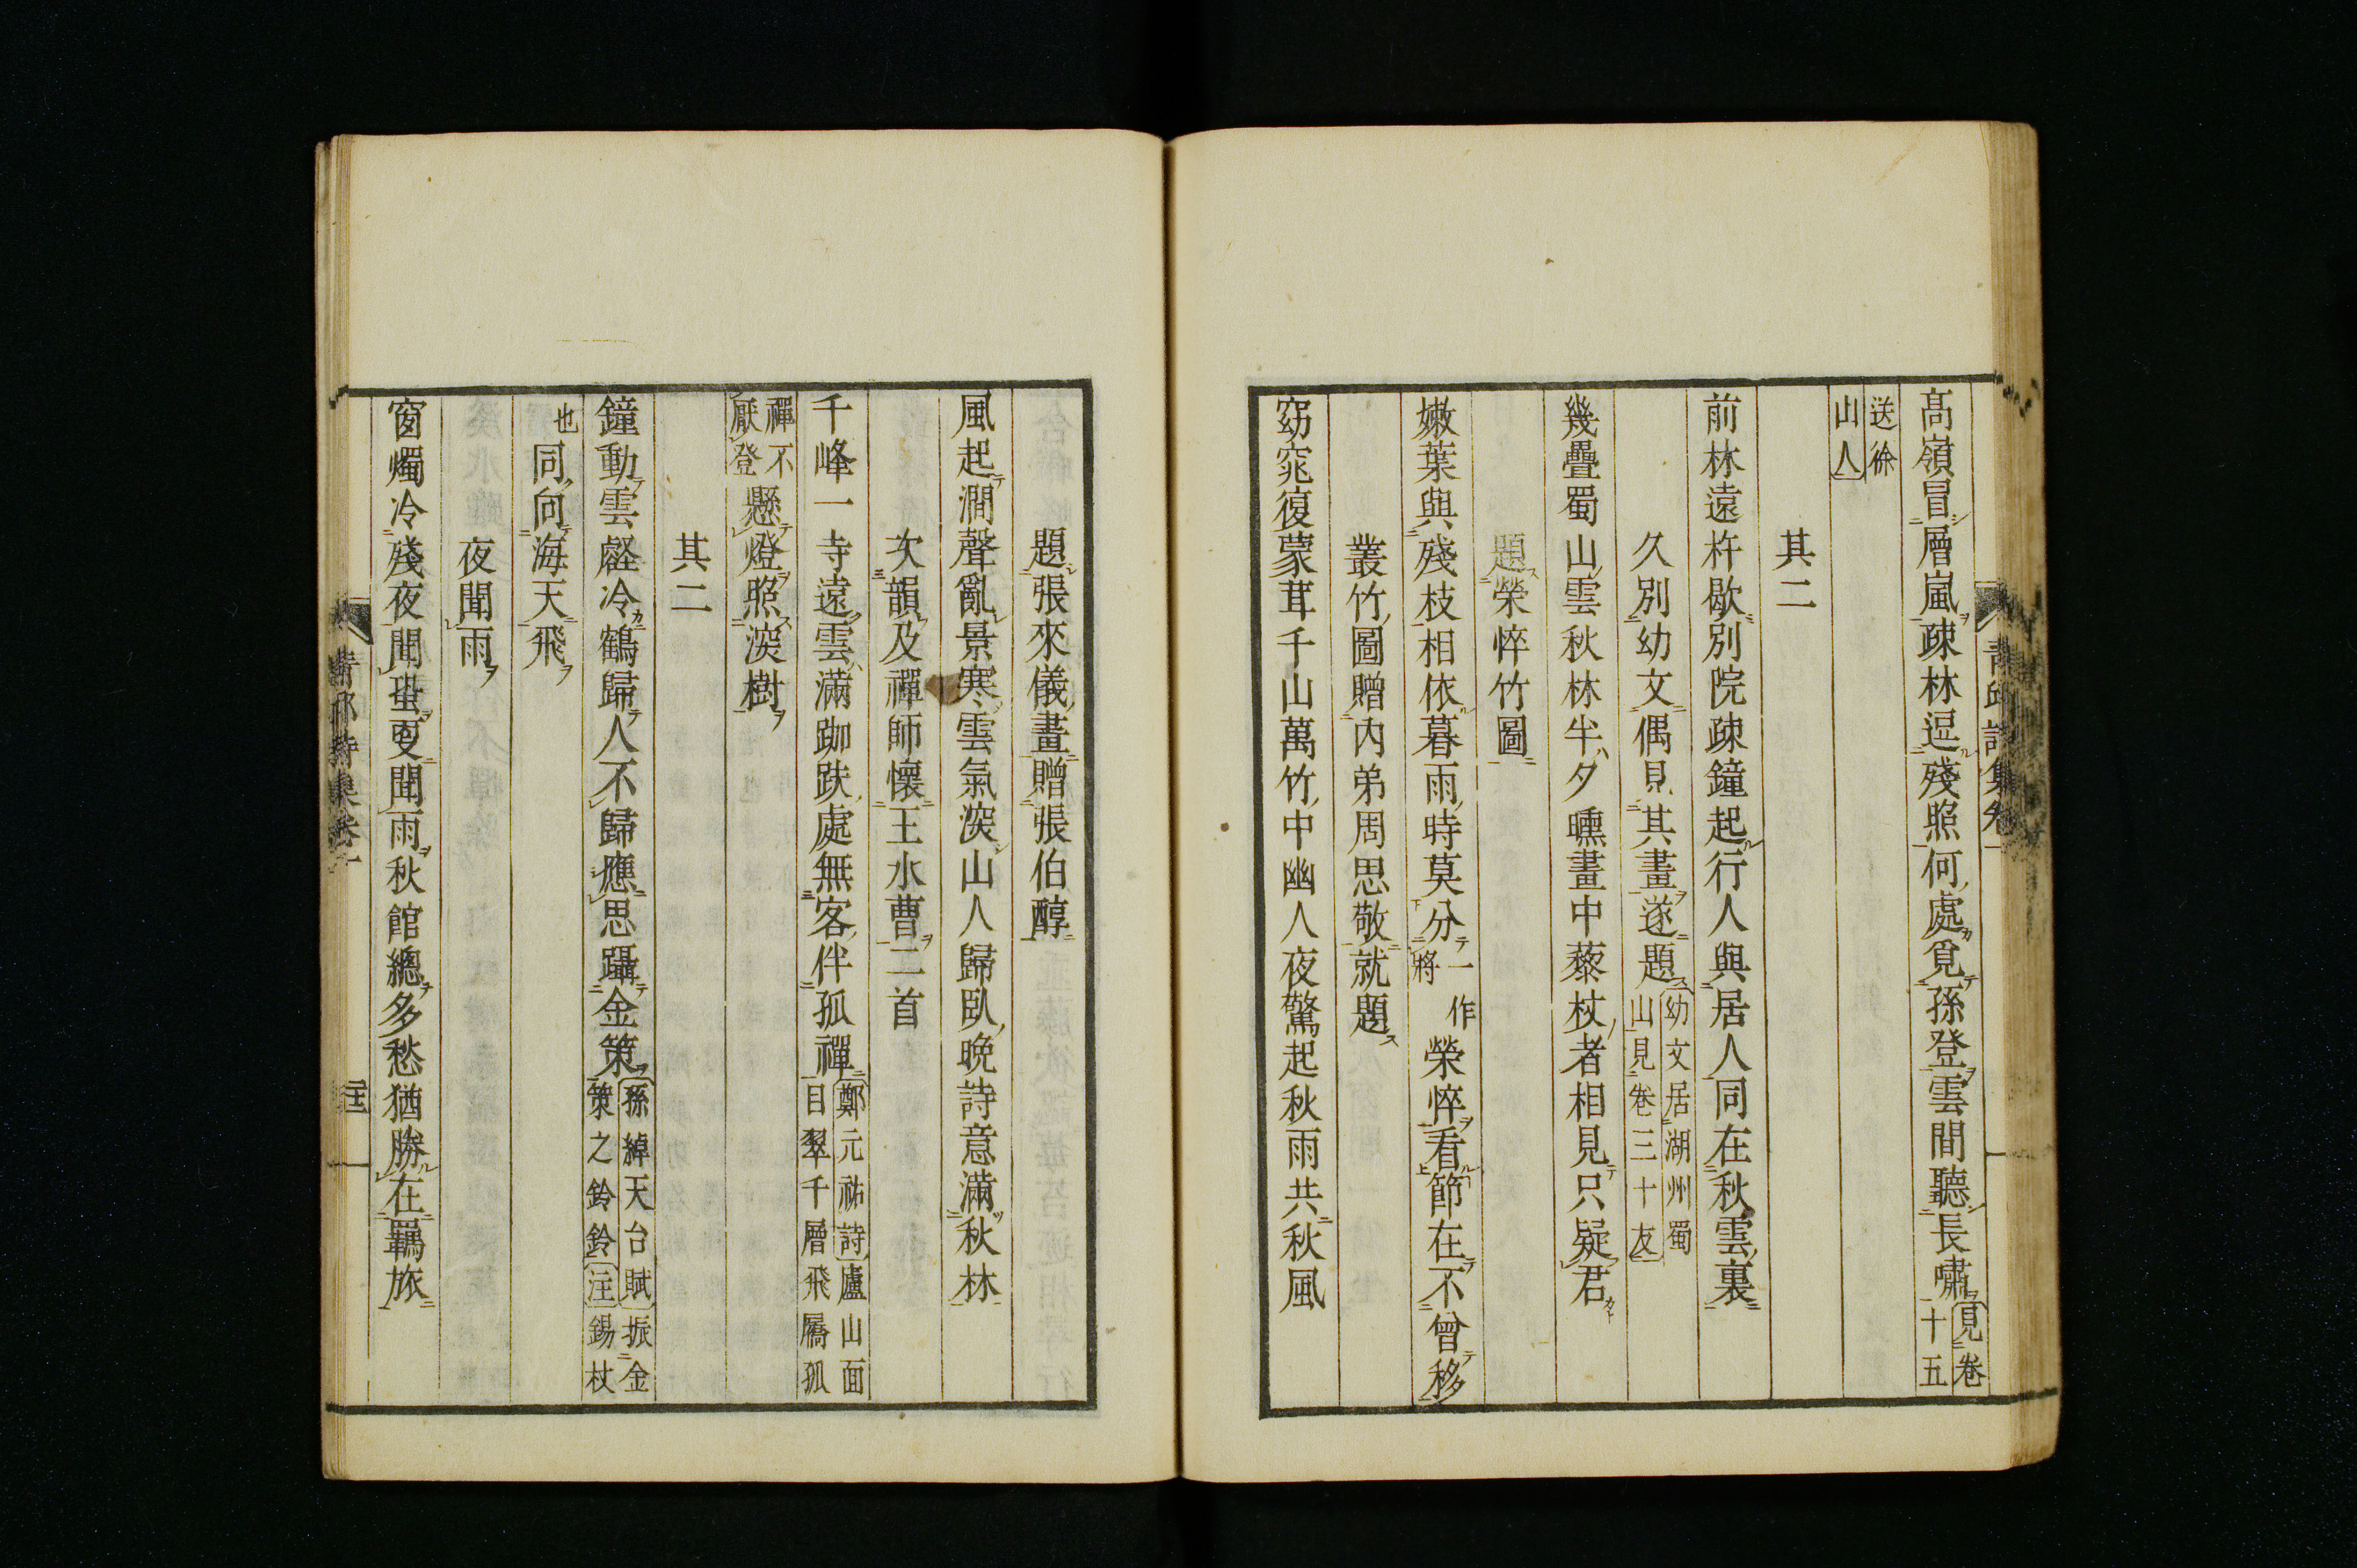 高嶺冒層嵐疎林逗殘照何處覓孫登雲間聽長嘯見卷十五
送徐山人
其二
前林遠杵歇別院疎鐘起行人與居人同在秋雲裏
久別幼文偶見其畫遂題幼文居湖州蜀山見卷三十友
幾疊蜀山雲秋林半夕曛畫中藜杖者相見只疑君
題榮悴竹圖
嫩葉與殘枝相依暮雨時莫分一作將榮悴看節在不曾移
叢竹圖贈內弟周思敬就題
窈窕復蒙茸千山萬竹中幽人夜驚起秋雨共秋風
題張來儀畫贈張伯醇
風起澗聲亂景寒雲氣深山人歸臥晚詩意滿秋林
次韻及禪師懷王水曹二首
千峰一寺遠雲滿跏趺處無客伴孤禪鄭元祐詩廬山面目翠千層飛屩孤
禪不厭登懸燈照深樹
其二
鐘動雲壑冷鶴歸人不歸應思躡金策孫綽天台賦振金策之鈴鈴注錫杖
也同向海天飛
夜聞雨
窗燭冷殘夜聞蛩更聞雨秋館總多愁猶勝在羈旅
青邱詩集卷一
青邱詩集卷一